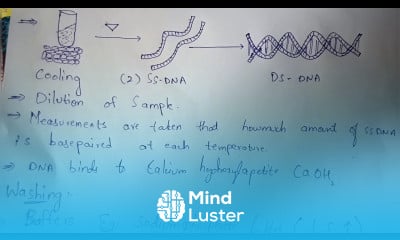 Cooling (2) SS-DNA DS-DNA
⇒ Dilution of Sample.
→ Measurements are taken that howmuch amount of SSDNA
is basepaired at each temperature.
⇒ DNA binds to Calcium hydroxylapetite CaOH,
Washing:
Mind
Luster
Buffers